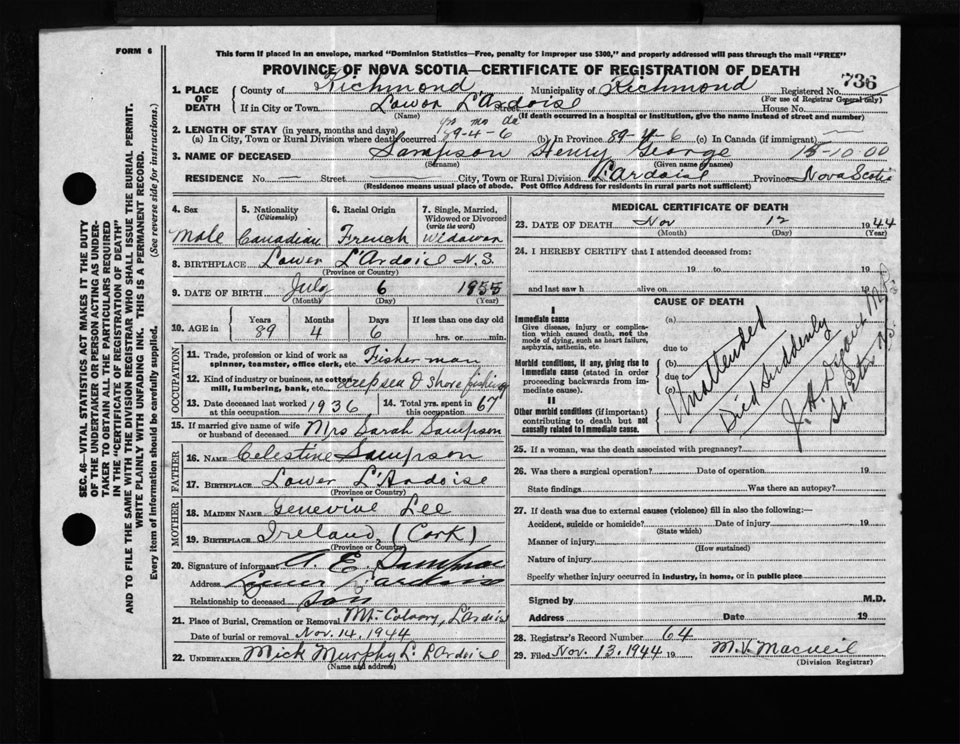 FORM 6
This form if placed in an envelope, marked "Dominion Statistics—Free, penalty for improper use $300," and properly addressed will pass through the mail "FREE"
PROVINCE OF NOVA SCOTIA—CERTIFICATE OF REGISTRATION OF DEATH
736
1. PLACE OF DEATH
County of Richmond Municipality of Richmond Registered No.
(For use of Registrar General only)
If in City or Town Lower L'Ardoise Street House No.
(Name) (If death occurred in a hospital or institution, give the name instead of street and number)
yr mo da
2. LENGTH OF STAY (in years, months and days)
(a) In City, Town or Rural Division where death occurred 89-4-6 (b) In Province 89-4-6 (c) In Canada (if immigrant) —
3. NAME OF DECEASED Sampson Henry George 15-10-00
(Surname) (Given name or names)
RESIDENCE No. — Street — City, Town or Rural Division L'Ardoise Province Nova Scotia
(Residence means usual place of abode. Post Office Address for residents in rural parts not sufficient)
4. Sex 5. Nationality (Citizenship) 6. Racial Origin 7. Single, Married, Widowed or Divorced (write the word)
Male Canadian French Widower
8. BIRTHPLACE Lower L'Ardoise N.S.
(Province or Country)
9. DATE OF BIRTH July 6 1855
(Month) (Day) (Year)
10. AGE in Years Months Days If less than one day old
89 4 6 hrs. or min.
OCCUPATION
11. Trade, profession or kind of work as spinner, teamster, office clerk, etc. Fisherman
12. Kind of industry or business, as cotton mill, lumbering, bank, etc. deepsea & shore fishing
13. Date deceased last worked at this occupation 1936 14. Total yrs. spent in this occupation 67
15. If married give name of wife or husband of deceased Mrs Sarah Sampson
FATHER
16. Name Celestine Sampson
17. Birthplace Lower L'Ardoise
(Province or Country)
MOTHER
18. Maiden Name Genevive Lee
19. Birthplace Ireland, (Cork)
(Province or Country)
20. Signature of informant A. E. Sampson
Address Lower L'Ardoise
Relationship to deceased Son
21. Place of Burial, Cremation or Removal Mt. Calvary, L'Ardoise
Date of burial or removal Nov. 14, 1944
22. UNDERTAKER Mick Murphy L. L'Ardoise
(Name and address)
MEDICAL CERTIFICATE OF DEATH
23. DATE OF DEATH Nov 12 1944
(Month) (Day) (Year)
24. I HEREBY CERTIFY that I attended deceased from:
19 to 19
and last saw h alive on 19
CAUSE OF DEATH
I
Immediate cause
Give disease, injury or complication which caused death, not the mode of dying, such as heart failure, asphyxia, asthenia, etc.
Morbid conditions, if any, giving rise to immediate cause (stated in order proceeding backwards from immediate cause).
II
Other morbid conditions (if important) contributing to death but not causally related to immediate cause.
(a)
due to
(b)
due to
(c)
Unattended
Died Suddenly
25. If a woman, was the death associated with pregnancy?
26. Was there a surgical operation? Date of operation 19
State findings Was there an autopsy?
27. If death was due to external causes (violence) fill in also the following:—
Accident, suicide or homicide? Date of injury 19
(State which)
Manner of injury
(How sustained)
Nature of injury
Specify whether injury occurred in industry, in home, or in public place
Signed by M.D.
Address Date 19
28. Registrar's Record Number 64
29. Filed Nov. 13, 1944 19 M.V. Macneil
(Division Registrar)
SEC. 46—VITAL STATISTICS ACT MAKES IT THE DUTY
OF THE UNDERTAKER OR PERSON ACTING AS UNDER-
TAKER TO OBTAIN ALL THE PARTICULARS REQUIRED
IN THE "CERTIFICATE OF REGISTRATION OF DEATH"
AND TO FILE THE SAME WITH THE DIVISION REGISTRAR WHO SHALL ISSUE THE BURIAL PERMIT.
WRITE PLAINLY WITH UNFADING INK. THIS IS A PERMANENT RECORD.
Every item of information should be carefully supplied. (See reverse side for instructions.)